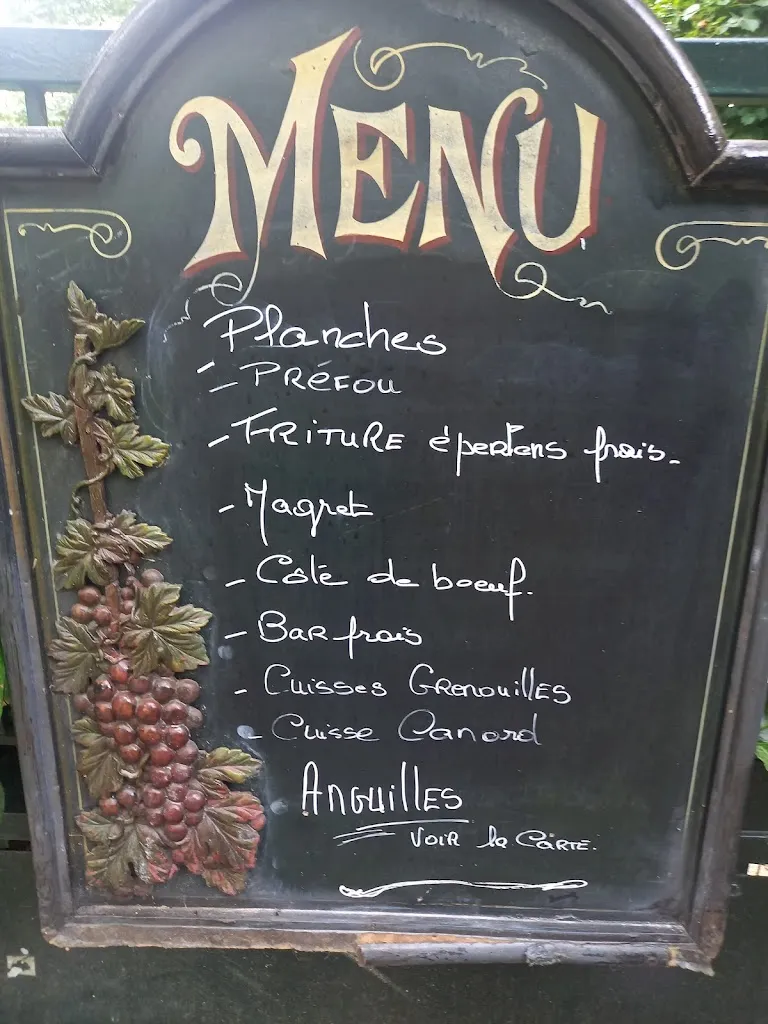 MENU
Planches
- PRÉFOU
- FRITURE éperlans frais.
- Magret
- Côte de boeuf.
- BAR frais
- Cuisses GRENOUILLES
- Cuisse Canard
ANGUILLES
VOIR la CARTE.